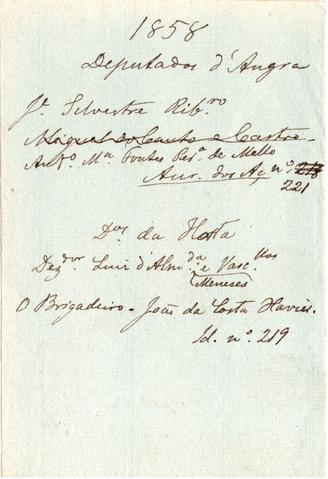 1858
Deputados d'Angra
Je. Silvestre Ribro
Miguel do Canto e Castro
Anto. Ma. Fontes Perª. de Mello
Aur. dos Aç nº. 218
221
Dos da Horta
Dezdor Luis d'Almda. e Vascllos
Meneses
O Brigadeiro - João da Costa Xavier.
Id. nº. 219